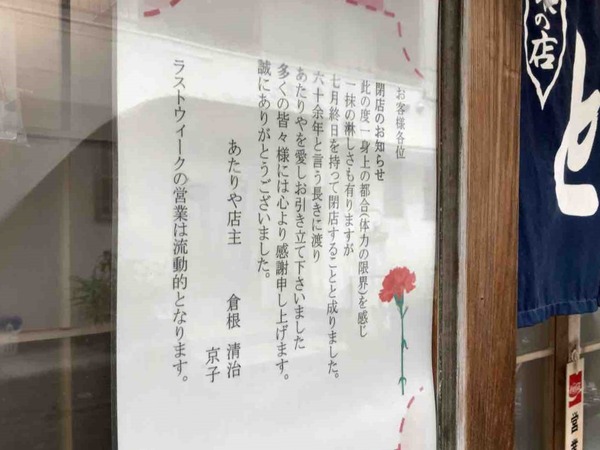 お客様各位
閉店のお知らせ
此の度一身上の都合(体力の限界)を感じ
一抹の淋しさも有りますが
七月終日を持って閉店することと成りました。
六十余年と言う長きに渡り
あたりやを愛しお引き立て下さいました
多くの皆々様には心より感謝申し上げます。
誠にありがとうございました。
あたりや店主 倉根 清治
京子
ラストウィークの営業は流動的となります。
の店
と
営業